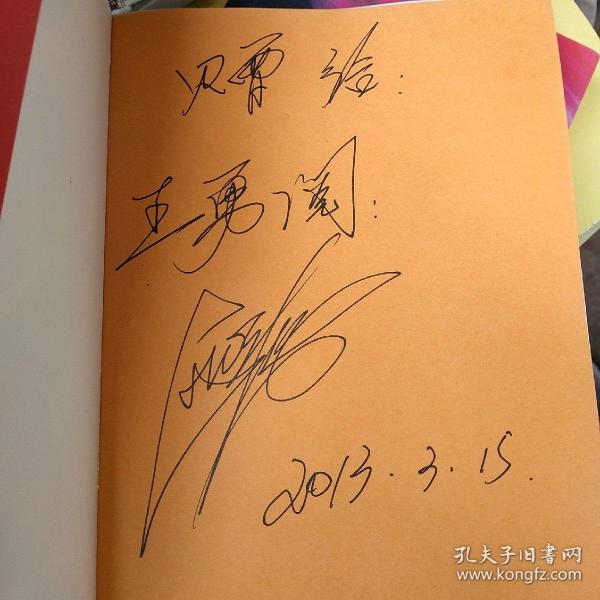 赠给：
王勇阅：
2013.3.15.
孔夫子旧書网
www.kongfz.com